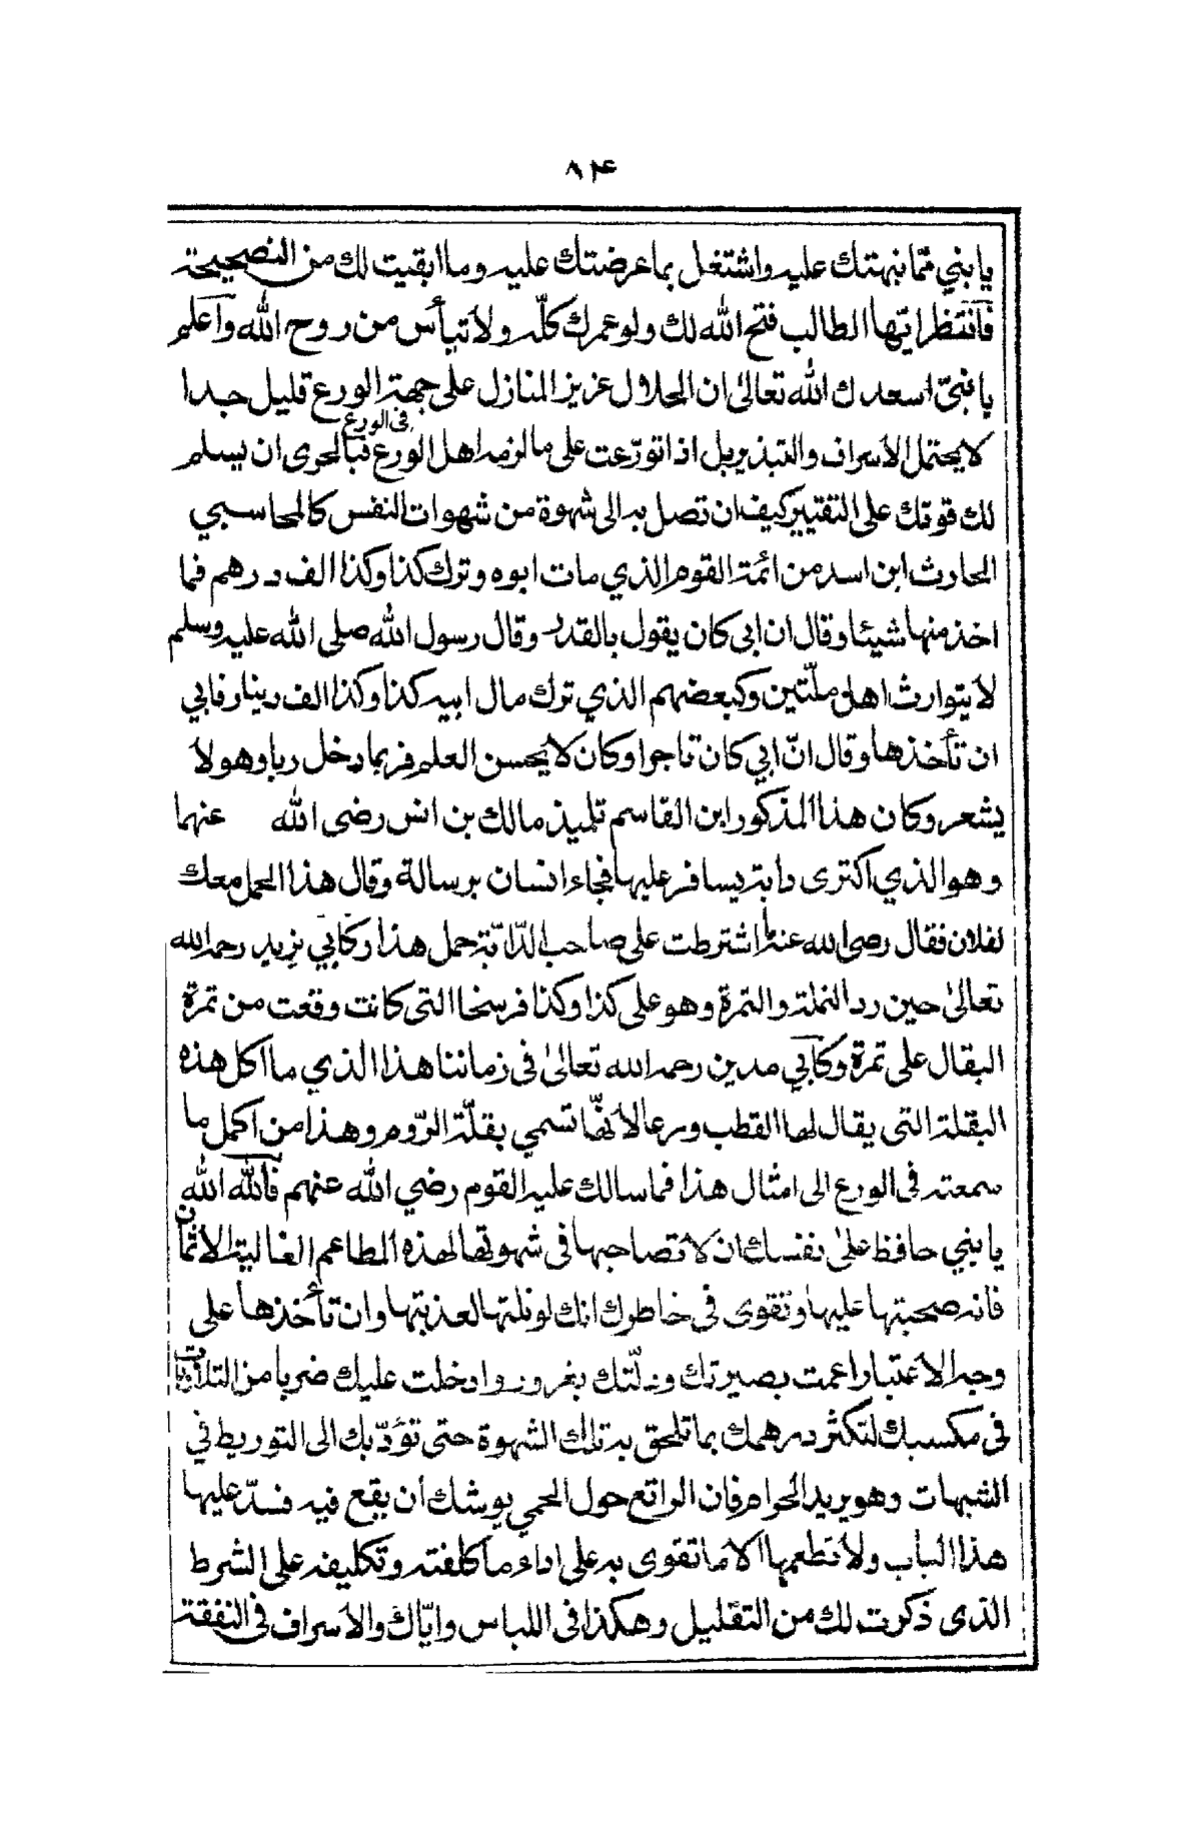 ٨٤
يا بني ممّا نبهتك عليه واشتغل بما عرضتك عليه وما ابقيت لك من النصيحة
فانتظر ايّها الطالب فتح الله لك ولو عمرك كلّه ولا تيأس من روح الله واعلم
يا بنيّ اسعدك الله تعالىٰ ان الحلال عزيز المنازل على جهة الورع قليل جدا
لا يحتمل الاسراف والتبذير بل اذا تورّعت على ما لزمه اهل الورع فى الورع فبالحرى ان يسلم
لك قوتك على التقتير كيف ان تصل به الى شهوة من شهوات النفس كالمحاسبي
الحارث ابن اسد من ائمة القوم الذي مات ابوه وترك كذا وكذا الف درهم فما
اخذ منها شيئا وقال ان ابى كان يقول بالقدر وقال رسول الله صلى الله عليه وسلم
لا يتوارث اهل ملّتين وكبعضهم الذي ترك مال ابيه كذا وكذا الف دينار فابي
ان تأخذها وقال انّ ابي كان تاجرا وكان لا يحسن العلم فربما دخل ربا وهو لا
يشعر وكان هذا المذكور ابن القاسم تلميذ مالك بن انس رضى الله عنهما
وهو الذي اكترى دابة يسافر عليها فجاء انسان برسالة وقال هذا الحمل معك
لفلان فقال رضى الله عنه ما اشترطت على صاحب الدّابّة حمل هذا وكابي يزيد رحمه الله
تعالىٰ حين رد النملة والتمرة وهو على كذا وكذا فرسخا التى كانت وقعت من تمرة
البقال على تمرة وكابي مدين رحمه الله تعالىٰ فى زماننا هذا الذي ما اكل هذه
البقلة التى يقال لها القطب ورعا لانهّا تسمي بقلّة الرّوم وهذا من اكمل ما
سمعته فى الورع الى امثال هذا فما سالك عليه القوم رضي الله عنهم فالله الله
يا بنيي حافظ علىٰ نفسك ان لا تصاحبها فى شهوتها لهذه المطاعم الغالية الاثمان
فانه صحبتها عليها وتقوى فى خاطرك انك لو نلتها لعذبتها وان تأخذها على
وجه الاعتبار اعمت بصيرتك ودلّتك بغرور وادخلت عليك ضربا من التلاويات
فى مكسبك لتكثر درهمك بما تلحق به تلك الشهوة حتى تؤدّبك الى التوريط في
الشبهات وهو بريد الحرام فان الراتع حول الحمي يوشك ان يقع فيه فسدّ عليها
هذا الباب ولا تطعمها الا ما تقوى به على اداء ما كلفته وتكليفه على الشرط
الذى ذكرت لك من التقليل وهكذا فى اللباس وايّاك والاسراف فى النفقة